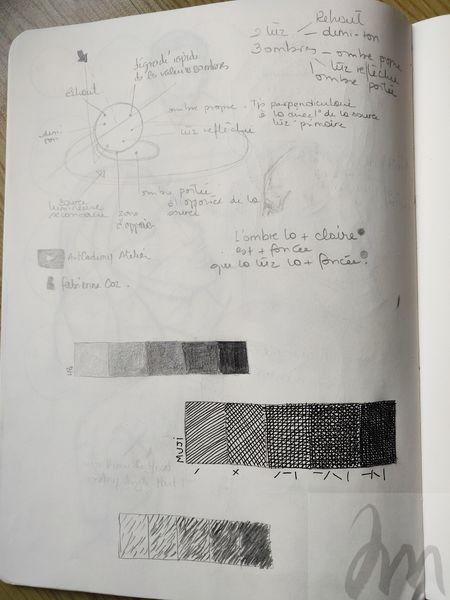 Rehaut
2 lüz - demi-ton
3 ombres - ombre propre
lüz reflêchie
ombre portée
dégradé rapide
de la valeur sombres
réhaut
ombre propre - Tjs perpendiculaire
à la direct° de la source
lüz primaire
lüz reflêchie
demi
ton
source
lumineuse
secondaire
zone
d'appui
ombre portée
à l'opposée de la
source
L'ombre la + claire
est + foncée
que la lüz la + foncée.
ArtCademy Atelier
Fabienne Coz.
MUJI